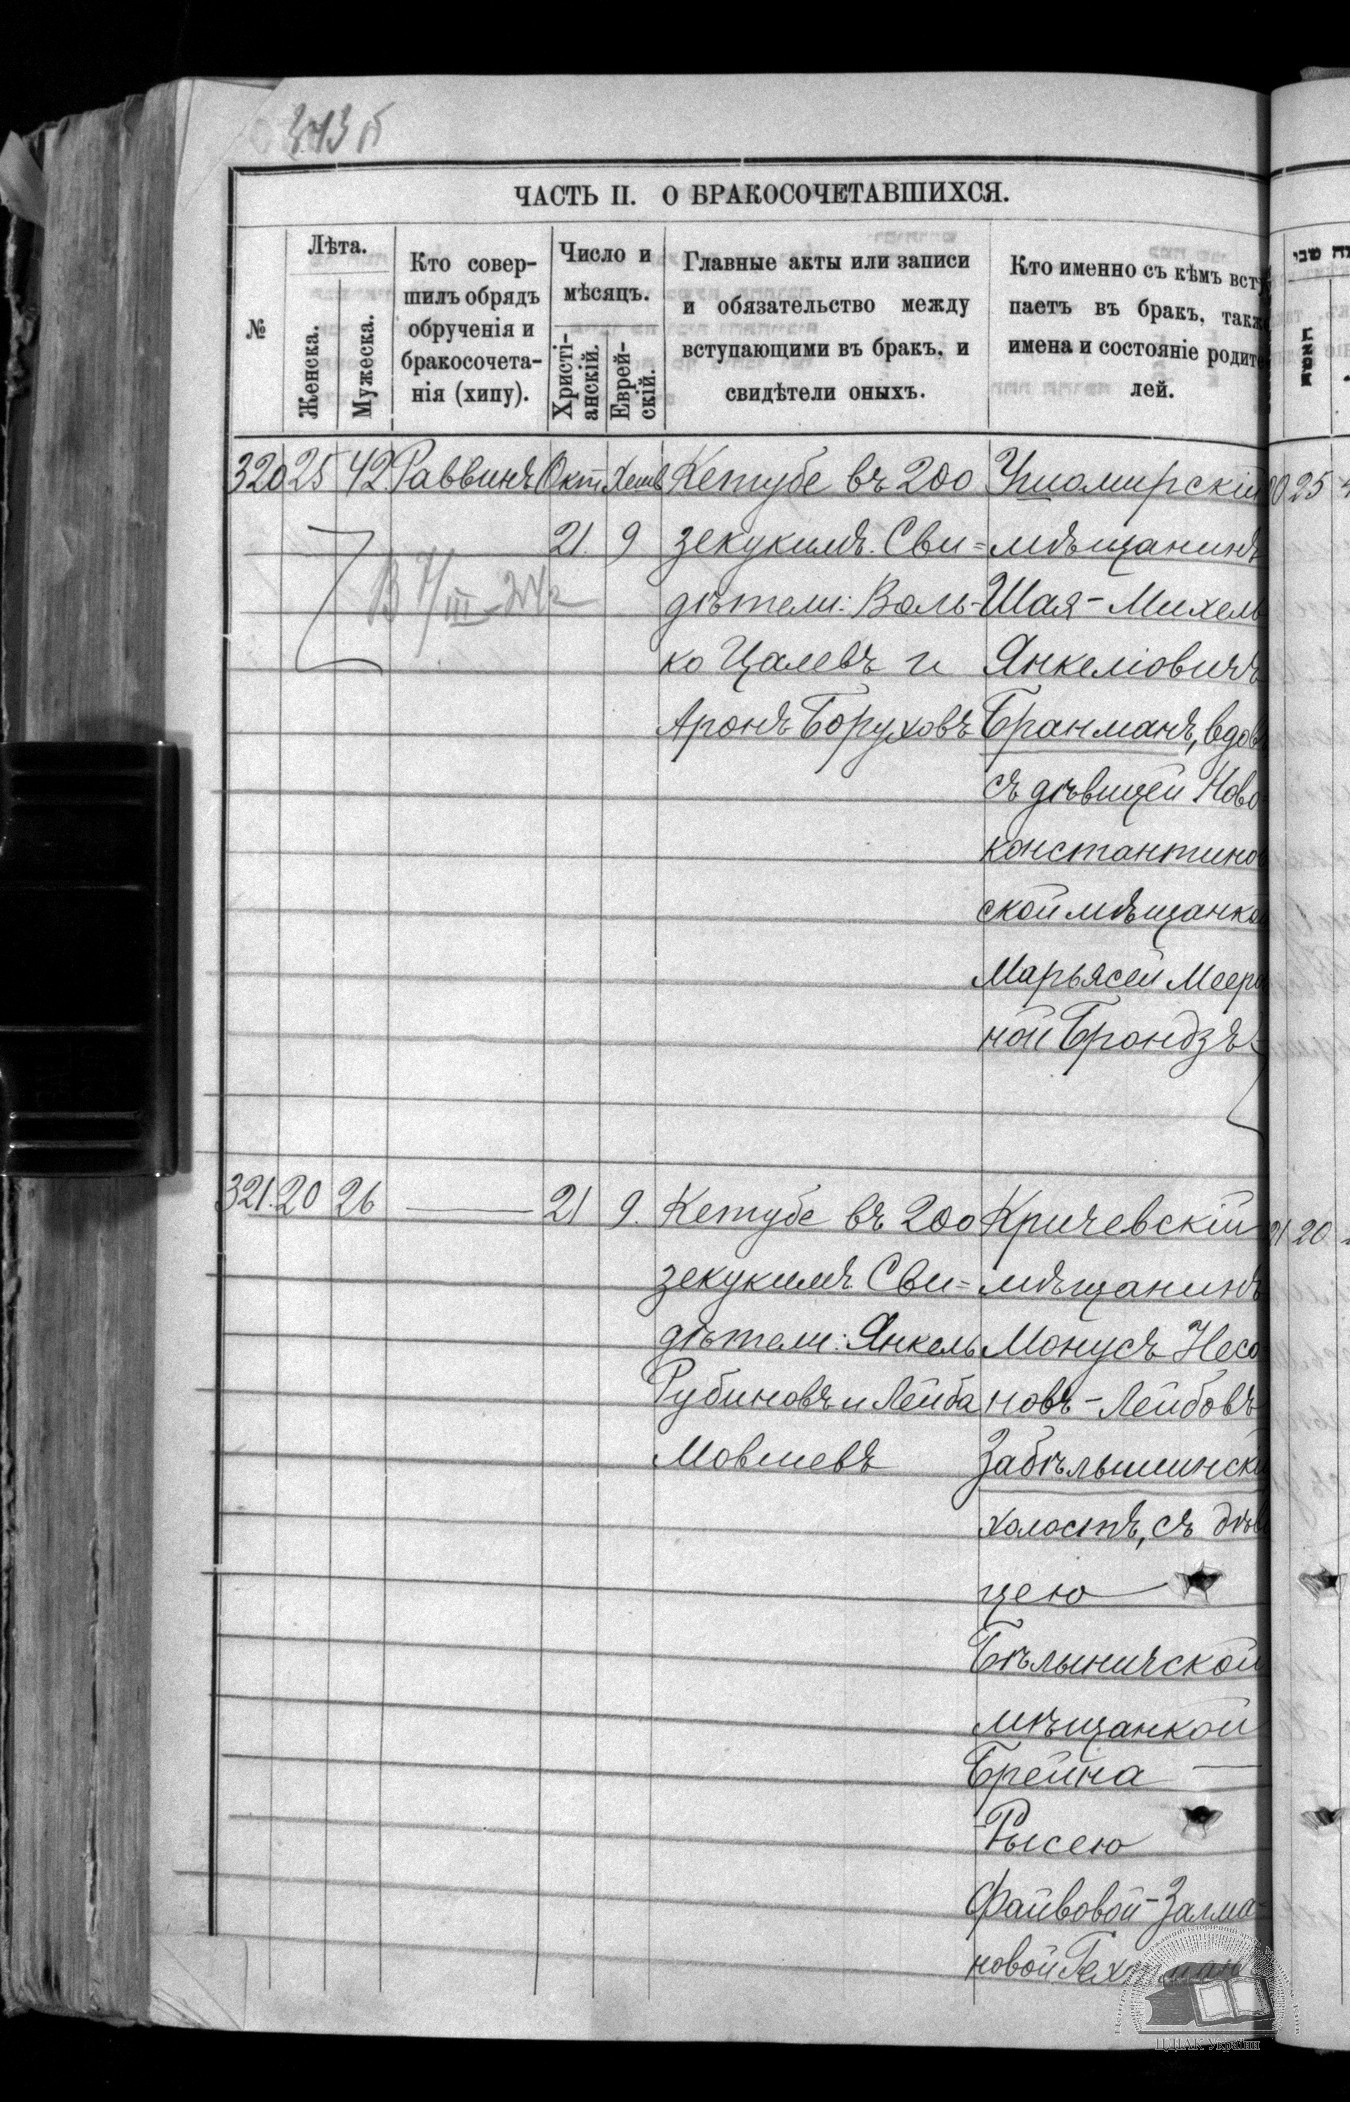 343 об
ЧАСТЬ II. О БРАКОСОЧЕТАВШИХСЯ.
№
Лѣта.
Женска.
Мужеска.
Кто совер-
шилъ обрядъ
обрученія и
бракосочета-
нія (хипу).
Число и
мѣсяцъ.
Христі-
анскій.
Еврей-
скій.
Главные акты или записи
и обязательство между
вступающими въ бракъ, и
свидѣтели оныхъ.
Кто именно съ кѣмъ всту
паетъ въ бракъ, также
имена и состояніе родите
лей.
320 25 42 Раввинъ Окт Хешв
21. 9
Кетубе въ 200
зекукимъ. Сви=
дѣтели: Воль-
ко Цалевъ и
Аронъ Боруховъ
Ушомирскій
мѣщанинъ
Шая-Михель
Янкеліовичъ
Бранманъ, вдов
съ дѣвицей Ново
константинов
ской мѣщанкой
Марьясей Мееро
ной Брондзъ
321. 20 26 — 21 9.
Кетубе въ 200
зекукимъ. Сви=
дѣтели: Янкель
Рубиновъ и Лейба
Мовшевъ
Кричевскій
мѣщанинъ
Монусъ Несо
новъ-Лейбовъ
Забѣлышински
холостъ, съ дѣви
цею
Бѣлыничской
мѣщанкой
Брейна —
Рысею
Файвовой-Залма-
новой
00 25
21 20
ЦДІАК України